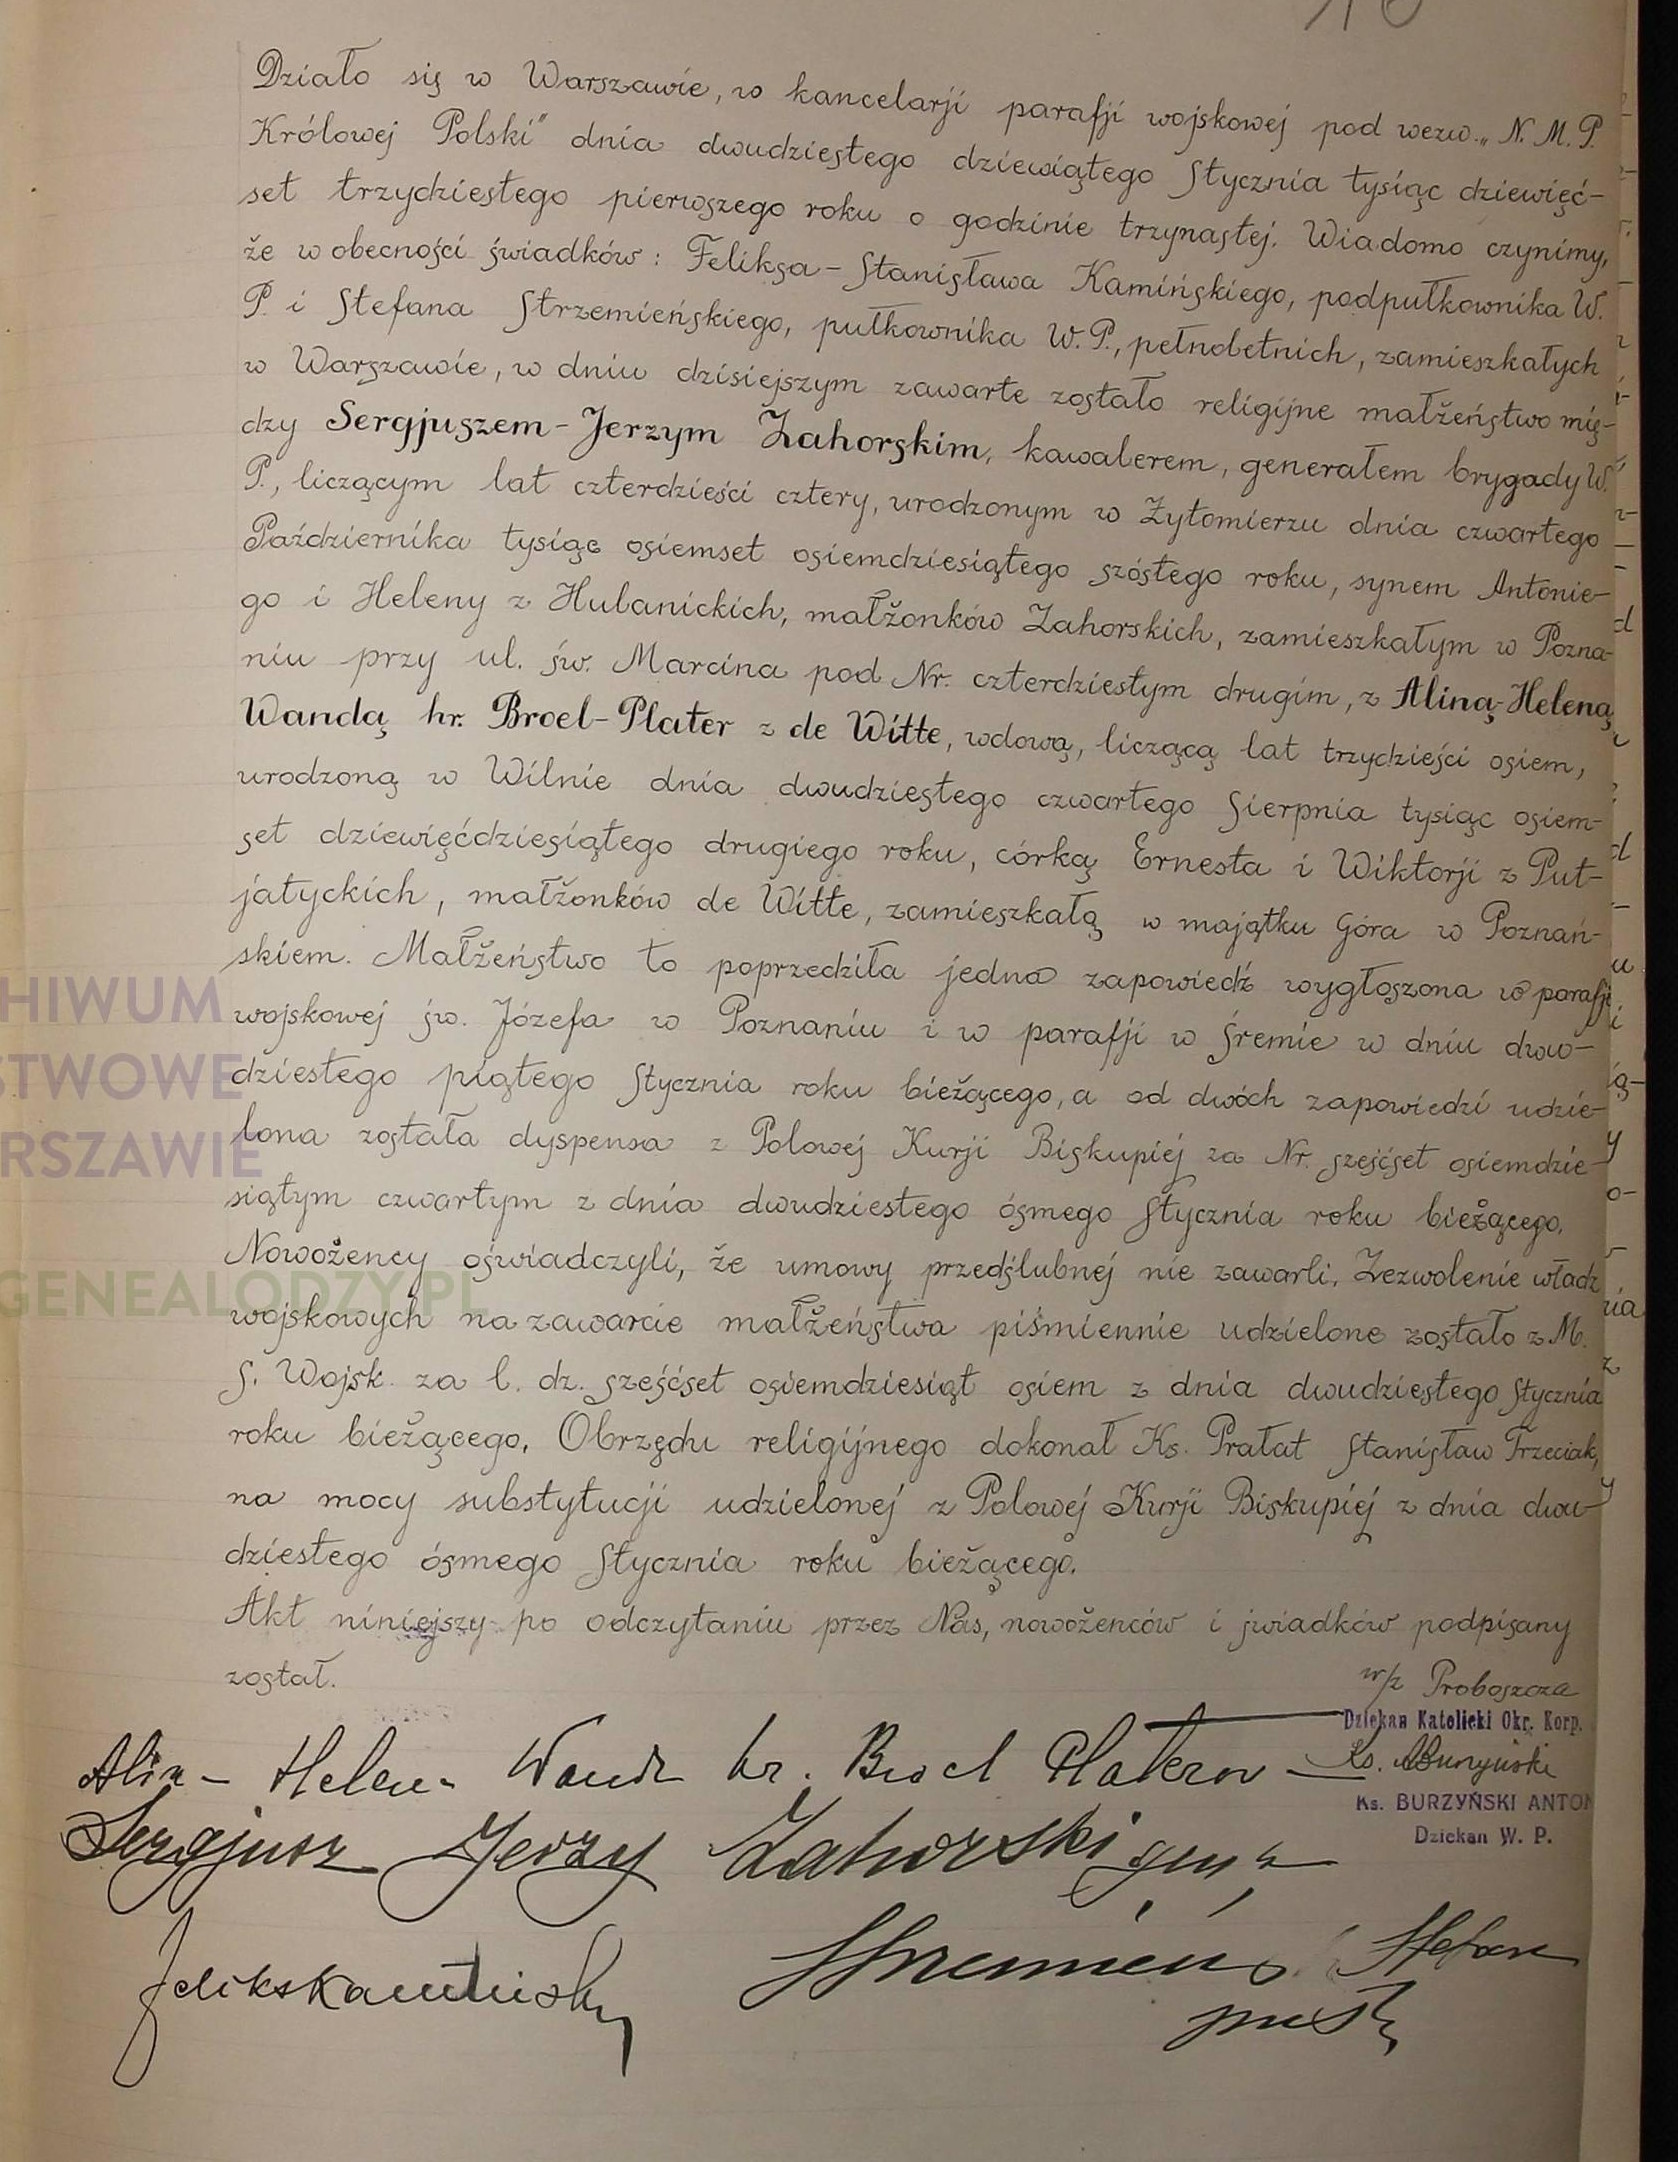 Działo się w Warszawie, w kancelarji parafji wojskowej pod wezw. „N. M. P.
Królowej Polski" dnia dwudziestego dziewiątego Stycznia tysiąc dziewięć-
set trzydziestego pierwszego roku o godzinie trzynastej. Wiadomo czynimy,
że w obecności świadków: Feliksa-Stanisława Kamińskiego, podpułkownika W.
P. i Stefana Strzemieńskiego, pułkownika W. P., pełnoletnich, zamieszkałych
w Warszawie, w dniu dzisiejszym zawarte zostało religijne małżeństwo mię-
dzy Sergjuszem-Jerzym Zahorskim, kawalerem, generałem brygady W.
P., liczącym lat czterdzieści cztery, urodzonym w Żytomierzu dnia czwartego
Października tysiąc osiemset osiemdziesiątego szóstego roku, synem Antonie-
go i Heleny z Hulanickich, małżonków Zahorskich, zamieszkałym w Pozna-
niu przy ul. św. Marcina pod Nr. czterdziestym drugim, z Aliną-Heleną
Wandą hr. Broel-Plater z de Witte, wdową, liczącą lat trzydzieści osiem,
urodzoną w Wilnie dnia dwudziestego czwartego Sierpnia tysiąc osiem-
set dziewięćdziesiątego drugiego roku, córką Ernesta i Wiktorji z Put-
jatyckich, małżonków de Witte, zamieszkałą w majątku Góra w Poznań-
skiem. Małżeństwo to poprzedziła jedna zapowiedź wygłoszona w parafji
wojskowej św. Józefa w Poznaniu i w parafji w Śremie w dniu dwu-
dziestego piątego Stycznia roku bieżącego, a od dwóch zapowiedzi udzie-
lona została dyspensa z Polowej Kurji Biskupiej za Nr. sześćset osiemdzie-
siątym czwartym z dnia dwudziestego ósmego Stycznia roku bieżącego.
Nowożency oświadczyli, że umowy przedślubnej nie zawarli. Zezwolenie władz
wojskowych na zawarcie małżeństwa piśmiennie udzielone zostało z M.
S. Wojsk. za l. dz. sześćset osiemdziesiąt osiem z dnia dwudziestego Stycznia
roku bieżącego. Obrzędu religijnego dokonał Ks. Prałat Stanisław Trzeciak,
na mocy substytucji udzielonej z Polowej Kurji Biskupiej z dnia dwu-
dziestego ósmego Stycznia roku bieżącego.
Akt niniejszy po odczytaniu przez Nas, nowożenców i świadków podpisany
został.
w/z Proboszcza
Dziekan Katolicki Okr. Korp.
Ks. ABurzyński
Ks. BURZYŃSKI ANTON
Dziekan W. P.
Alina-Helena Wanda hr. Broel Platerow
Sergjusz Jerzy Zahorski gen
Feliks Kamiński
Strzemieńs Stefan
HIWUM
STWOWE
RSZAWIE
GENEALODZY.PL